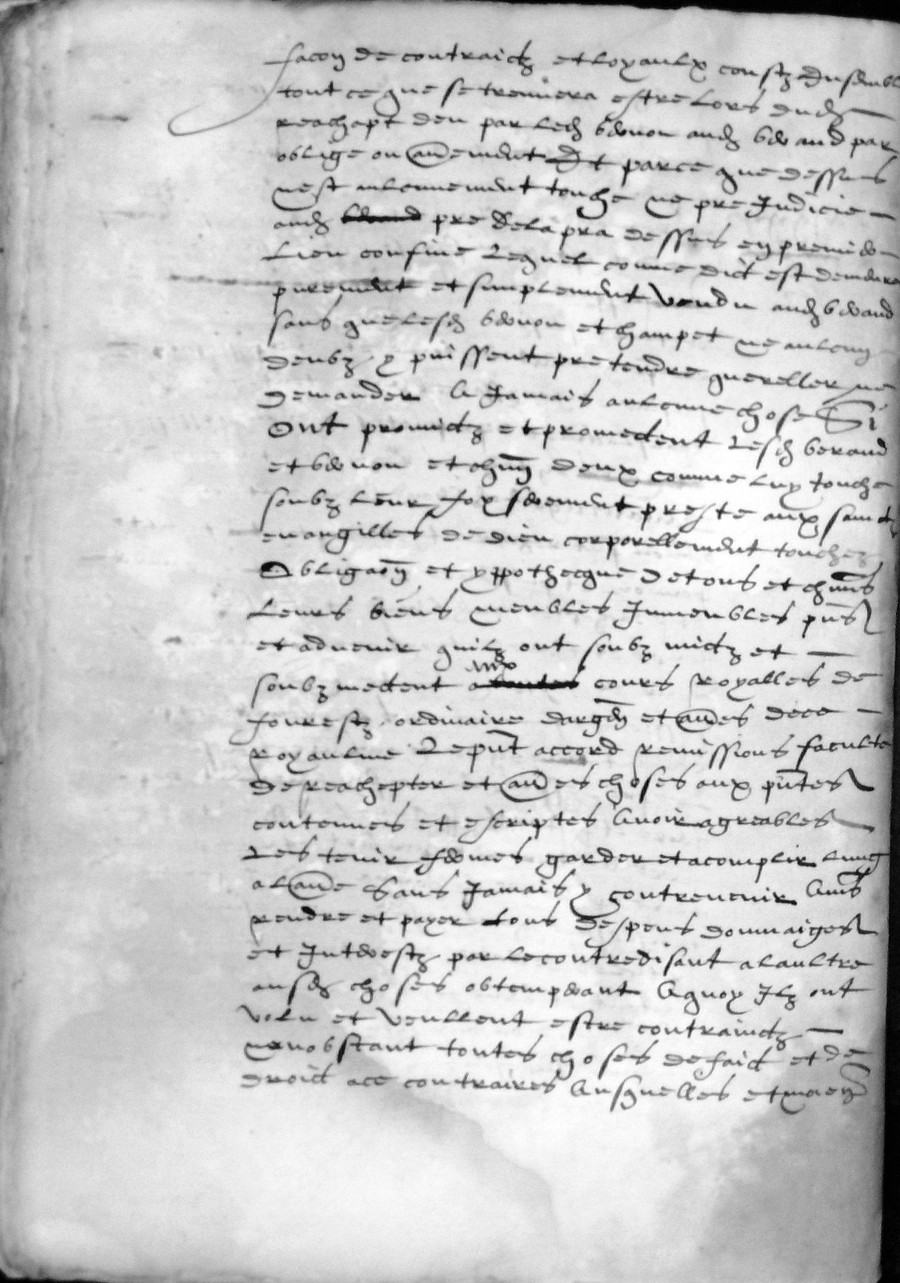 facon de contraictz et loyaulx constz Ensembl
tout ce que se treuvera estre lors dud
reachapt deu par led bennon aud beraud par
oblige ou aūement Et parce que dessus
nest aulcunement touche ne preJudicie
aud beraud pre de la pra desses en premier
Lieu confine Lequel comme dict est demeure
purement et simplement vendu aud beraud
sans que lesd bennon et champet ne aulcung
deulz y puissent pretendre quereller ne
demander A Jamais aulcune chose Si
Ont promictz et promectent Lesd beraud
et bennon et chūn deux comme luy touche
soubz leur foy serement preste aux sainctz
evangilles de dieu corporellement touchez
Obligaōn et yppothecque de tous et chūns
Leurs biens meubles Jmmeubles pn̄s
et advenir quilz ont soubz mictz et
soubzmectent aux cours royalles de
fourestz ordinaire dargen et aūes de ce
royaulme Le pn̄t accord remissions faculte
de reachepter et aūes choses aux pn̄tes
contenues et escriptes Avoir agreables
Les tenir fermes garder et acomplir lung
a laūe sans Jamais y contrevenir Ains
rendre et payer tous despens dommaiges
et Interestz par le contredisant a laultre
ausd choses obtemperant A quoy Jlz ont
volu et veullent estre contrainctz
nonobstant toutes choses de faict et de
droict a ce contraires Ausquelles et moien